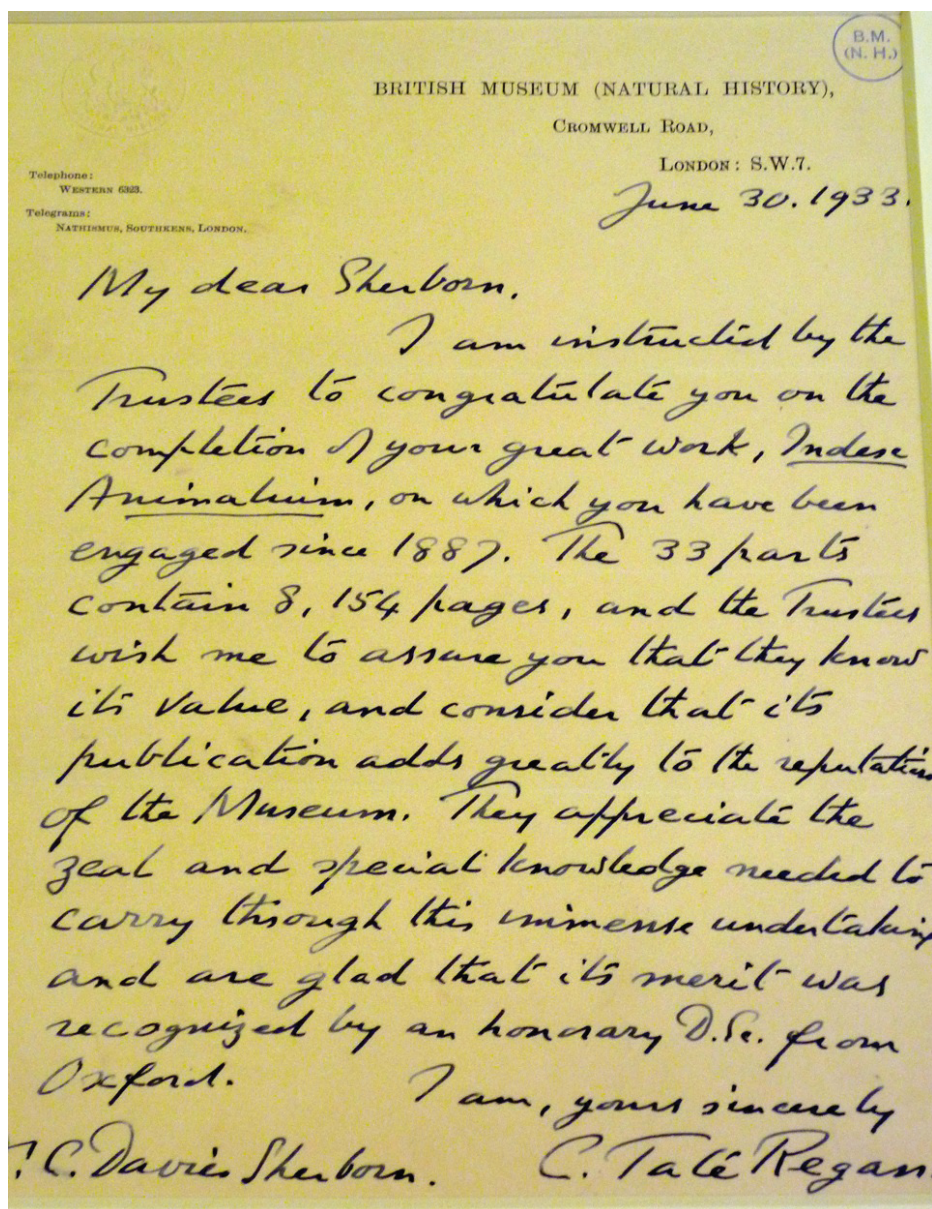 B.M.
(N.H.)
BRITISH MUSEUM (NATURAL HISTORY),
CROMWELL ROAD,
LONDON: S.W.7.
Telephone:
WESTERN 6323.
Telegrams:
NATHISMUS, SOUTHKENS, LONDON.
June 30. 1933.
My dear Sherborn,
I am instructed by the
Trustees to congratulate you on the
completion of your great work, Index
Animalium, on which you have been
engaged since 1887. The 33 parts
contain 8,154 pages, and the Trustees
wish me to assure you that they know
its value, and consider that its
publication adds greatly to the reputation
of the Museum. They appreciate the
zeal and special knowledge needed to
carry through this immense undertaking
and are glad that its merit was
recognized by an honorary D.Sc. from
Oxford.
I am, yours sincerely
C. Davies Sherborn.
C. Tate Regan.